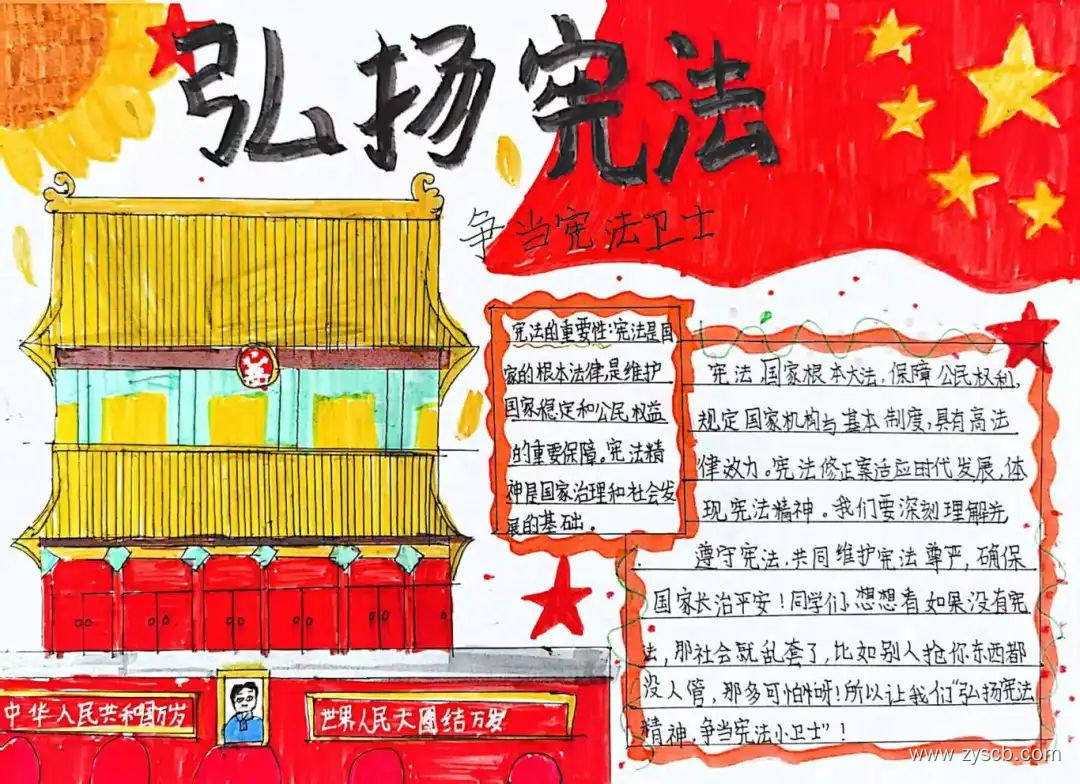 弘扬宪法
争当宪法卫士
宪法的重要性:宪法是国
家的根本法律,是维护
国家稳定和公民权益
的重要保障。宪法精
神是国家治理和社会发
展的基础。
宪法 国家根本大法,保障公民权利,
规定国家机构与基本制度,具有高法
律效力。宪法修正案适应时代发展,体
现宪法精神。我们要深刻理解
遵守宪法,共同维护宪法尊严,确保
国家长治平安!同学们想想看如果没有宪
法,那社会就乱套了,比如别人抢你东西都
没人管,那多可怕呀!所以让我们“弘扬宪法
精神,争当宪法小卫士”!
中华人民共和国万岁
世界人民大团结万岁
www.zyscb.com